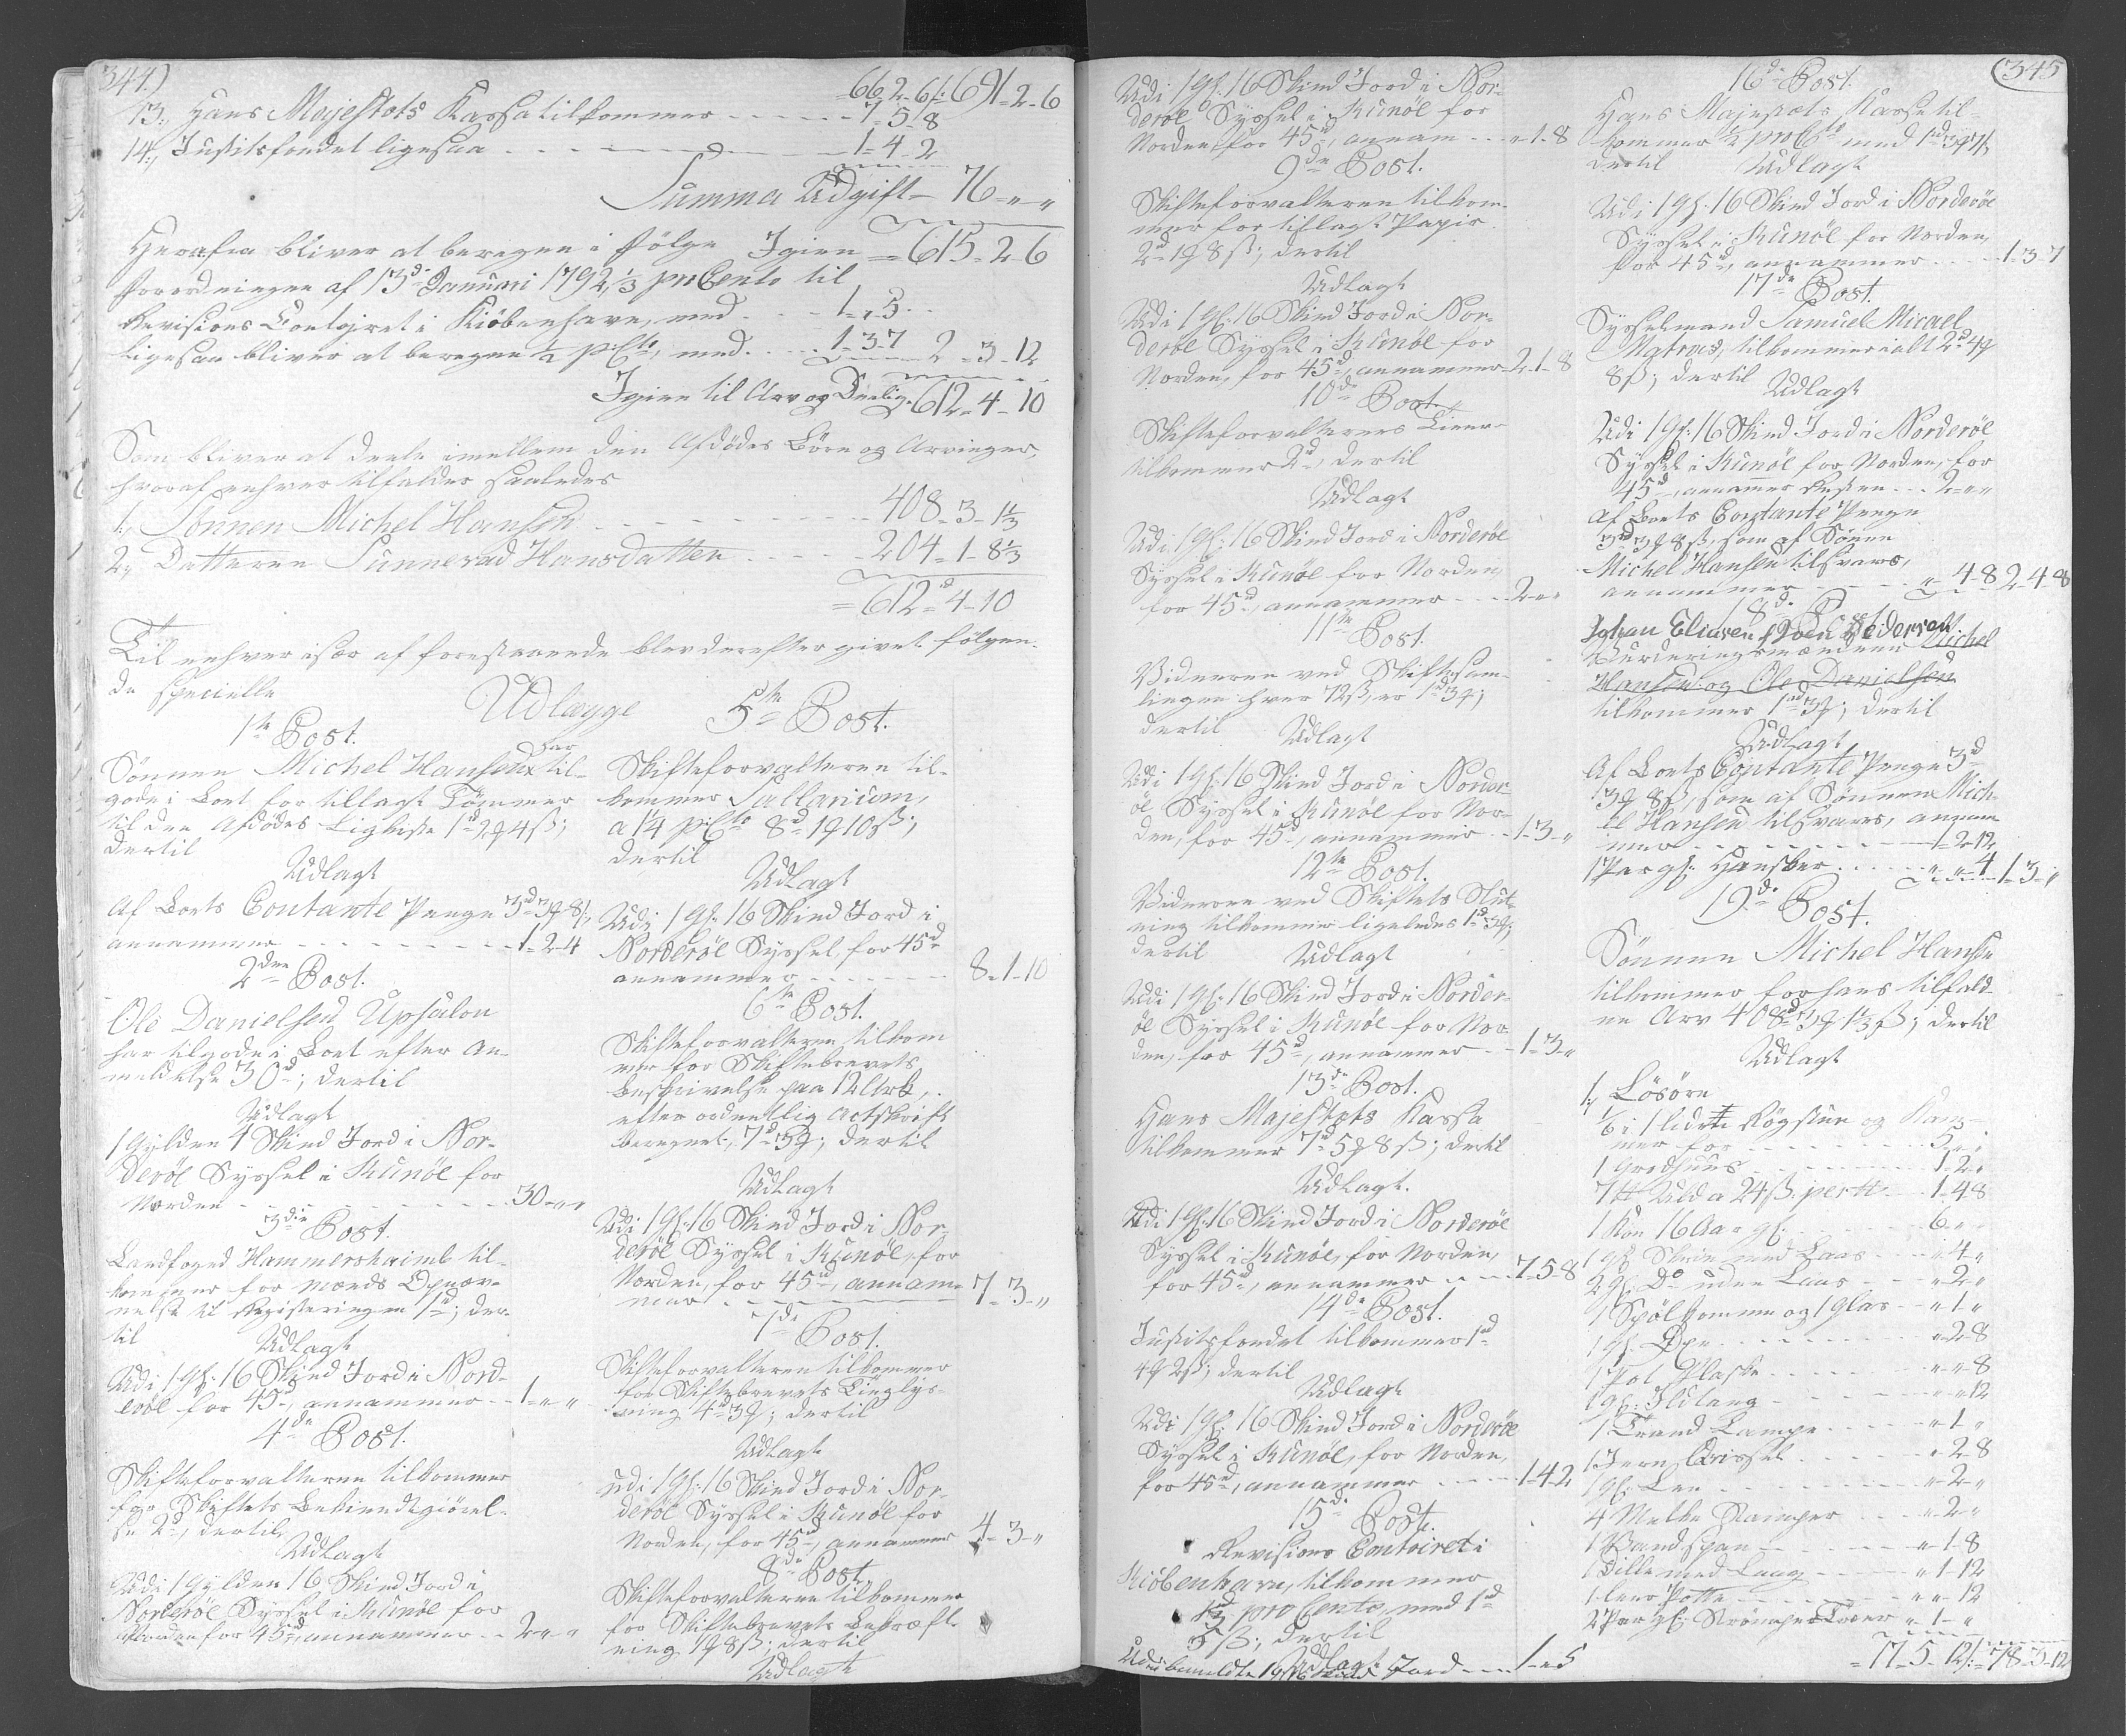 344.)
66 2 6/: 691 - 2 - 6
13., Hans Majestets Kassa tilkommer - - - - - 7 - 5 - 8
14., Justitsfondet ligesaa - - - - 1 - 4 - 2
Summa Udgift - 76 - " - "
Herafra bliver at beregne i følge Igien = 615 - 2 - 6
Forordningen af 13de Januari 1792, 1/3 pro Cento til
Revisions Contoiret i Kiöbenhavn, med - - - 1 - " - 5
ligesaa bliver at beregne 1/4 p: Cto, med - - - 1 - 3 - 7 2 - 3 - 12
Igien til Arv og Deeling 612 - 4 - 10
Som bliver at deele imellem den Afdödes Börn og Arvinger,
hvoraf enhver tilfalder saaledes
1., Sönnen Michel Hansen - - - - - 408 - 3 - 1 1/3
2., Datteren Sunnevad Hansdatter - - - - 204 - 1 - 8 2/3
= 612 - 4 - 10
Til enhver især af forestaaende blev derefter givet følgen-
de specielle
Udlægge
1te Post.
Sönnen Michel Hansen har til-
gode i Boet for tillagt Tömmer
til den Afdödes Ligkiste 1d 2 4ß;
dertil
Udlagt
Af Boets Contante Penge 3d 3 8ß,
annammer - - - - - - 1 - 2 - 4
2den Post.
Ole Danielsen Upsalon
har tilgode i Boet efter An-
meldelse 30d; dertil
Udlagt
1 Gylden 4 Skind Jord i Nor-
deröe Syssel i Kunöe for
Norden - - - - - - 30 - " - "
3die Post.
Landfoged Hammershaimb til-
kommer for Mænds Opnæv-
nelse til Registeringen 1d; der-
til
Udlagt
Udi 1 Gf: 16 Skind Jord i Nord-
eröe for 45d, annammer - - 1 - " - "
4de Post.
Skifteforvalteren tilkommer
for Skiftets Bekiendtgiörel-
se 2d, dertil
Udlagt
Udi 1 Gylden 16 Skind Jord i
Norderöe Syssel i Kunöe for
Norden for 45d, annammer - - 2 - " - "
5te Post.
Skifteforvalteren til-
kommer Sallarium,
a 1 1/4 p: Cto 8d 1 10ß;
dertil
Udlagt
Udi 1 Gf: 16 Skind Jord i
Norderöe Syssel for 45d
annammer - - - - - 8 - 1 - 10
6te Post.
Skifteforvalteren tilkom
mer for Skiftebrevets
Beskrivelse paa 12 Ark,
efter ordentlig Actskrift
beregnet, 7d 3; dertil
Udlagt
Udi 1 Gf: 16 Skind Jord i Nor-
deröe Syssel i Kunöe, for
Norden, for 45d, annam-
mer - - - - - 7 - 3 - "
7de Post.
Skifteforvalteren tilkommer
for Skiftebrevets Tinglys-
ning 4d 3; dertil
Udlagt
Udi 1 Gf: 16 Skind Jord i Nor-
deröe Syssel i Kunöe for
Norden, for 45d, annammer 4 - 3 - "
8de Post.
Skifteforvalteren tilkommer
for Skiftebrevets Bekræft-
ning 1 8ß; dertil
Udlagt
345
Udi 1 Gf: 16 Skind Jord i Nor-
deröe Syssel i Kunöe for
Norden, for 45d, annam - - - " - 1 - 8
9de Post.
Skifteforvalteren tilkom-
mer for tillagt Papir
2d 1 8ß; dertil
Udlagt
Udi 1 Gf: 16 Skind Jord i Nor-
deröe Syssel i Kunöe for
Norden, for 45d, annammer - 2 - 1 - 8
10de Post.
Skifteforvalterens Tiener
tilkommer 2d, dertil
Udlagt
Udi 1 Gf: 16 Skind Jord i Norderöe
Syssel i Kunöe for Norden,
for 45d, annammer - - - 2 - " - "
11te Post.
Vidnerne ved Skiftesam-
lingen hver 72ß, er 1d 3;
dertil Udlagt
Udi 1 Gf: 16 Skind Jord i Norder-
öe Syssel i Kunöe for Nor-
den, for 45d, annammer - - 1 - 3 - "
12te Post.
Vidnerne ved Skiftets Slut-
ning tilkommer ligeledes 1d 3;
dertil Udlagt
Udi 1 Gf: 16 Skind Jord i Norder-
öe Syssel i Kunöe for Nor-
den, for 45d, annammer - - 1 - 3 - "
13de Post.
Hans Majestets Kassa
tilkommer 7d 5 8ß; dertil
Udlagt.
Udi 1 Gf: 16 Skind Jord i Norderöe
Syssel i Kunöe, for Norden,
for 45d, annammer - - - 7 - 5 - 8
14de Post.
Justitsfondet tilkommer 1d
4 2ß; dertil
Udlagt
Udi 1 Gf: 16 Skind Jord i Norderöe
Syssel i Kunöe, for Norden,
for 45d, annammer - - - - 1 - 4 - 2
15de Post.
Revisions Contoiret i
Kiöbenhavn, tilkommer
1/3 pro Cento, med 1d
5ß; dertil
Udlagt
Udi bemeldte 1 Gf 16 Skind Jord - - - 1 - " - 5
16de Post.
Hans Majestæts Kasse til-
kommer 1/4 pro Cto med 1d 3 7ß
dertil Udlagt
Udi 1 Gf: 16 Skind Jord i Norderöe
Syssel i Kunöe for Norden,
for 45d, annammer - - - - 1 - 3 - 7
17de Post.
Sysselmand Samuel Micael
Matras, tilkommer i alt 2d 4
8ß; dertil Udlagt
Udi 1 Gf: 16 Skind Jord i Norderöe
Syssel i Kunöe for Norden, for
45d, annammer Resten - - - 2 - " - "
Af Boets Contante Penge
3d 3 8ß, som af Sönnen
Michel Hansen tilsvares,
annammer - - - - " - 4 - 8 2 - 4 - 8
18de Post
Johan Eliasen, Poul Pedersen
Vurderingsmændene Michel
Hansen og Ole Danielsen
tilkommer 1d 3; dertil
Udlagt
Af Boets Contante Penge 3d
3 8ß, som af Sönnen Mich-
el Hansen tilsvares, annam
mer - - - - - - - 1 - 2 - 12
1 Par gl: Handsker - - - - " - " - 4 1 - 3 - "
19de Post.
Sönnen Michel Hansen
tilkommer for hans tilfald-
ne Arv 408d 3 1 1/3 ß; dertil
Udlagt
1., Lösöre
1/6 i 1 liden Rögstue og Kam-
mer for - - - - - - 5 - " - "
1 Grodhuus - - - - - - 1 - 2 - "
7 ℔ Uld a 24ß per ℔ - - - 1 - 4 - 8
1 Koe 16 Aar gl: - - - - 6 - " - "
1 gl: Skrin med Laas - - - " - 4 - "
2 gl: Do uden Laas - - - " - 2 - "
1 Spölkomme og 1 Glas - - " - 1 - "
1 gl: Öxe - - - - - " - 2 - 8
1 Pot Flaske - - - - - " - " - 8
1 gl: Ildtang - - - - - " - " - 12
1 Trand Lampe - - - - " - 1 - "
1 Jern Drissel - - - - " - 2 - 8
1 gl: Lee - - - - - " - 2 - "
4 Melke Kamper - - - " - 2 - "
1 Vandspan - - - - " - 1 - 8
1 Dille med Laag - - - " - 1 - 12
1 Leer Potte - - - - " - " - 12
2 Par gl: Strömper Toær " - 1 - "
= 17 - 5 - 12/: = 78 - 3 - 12